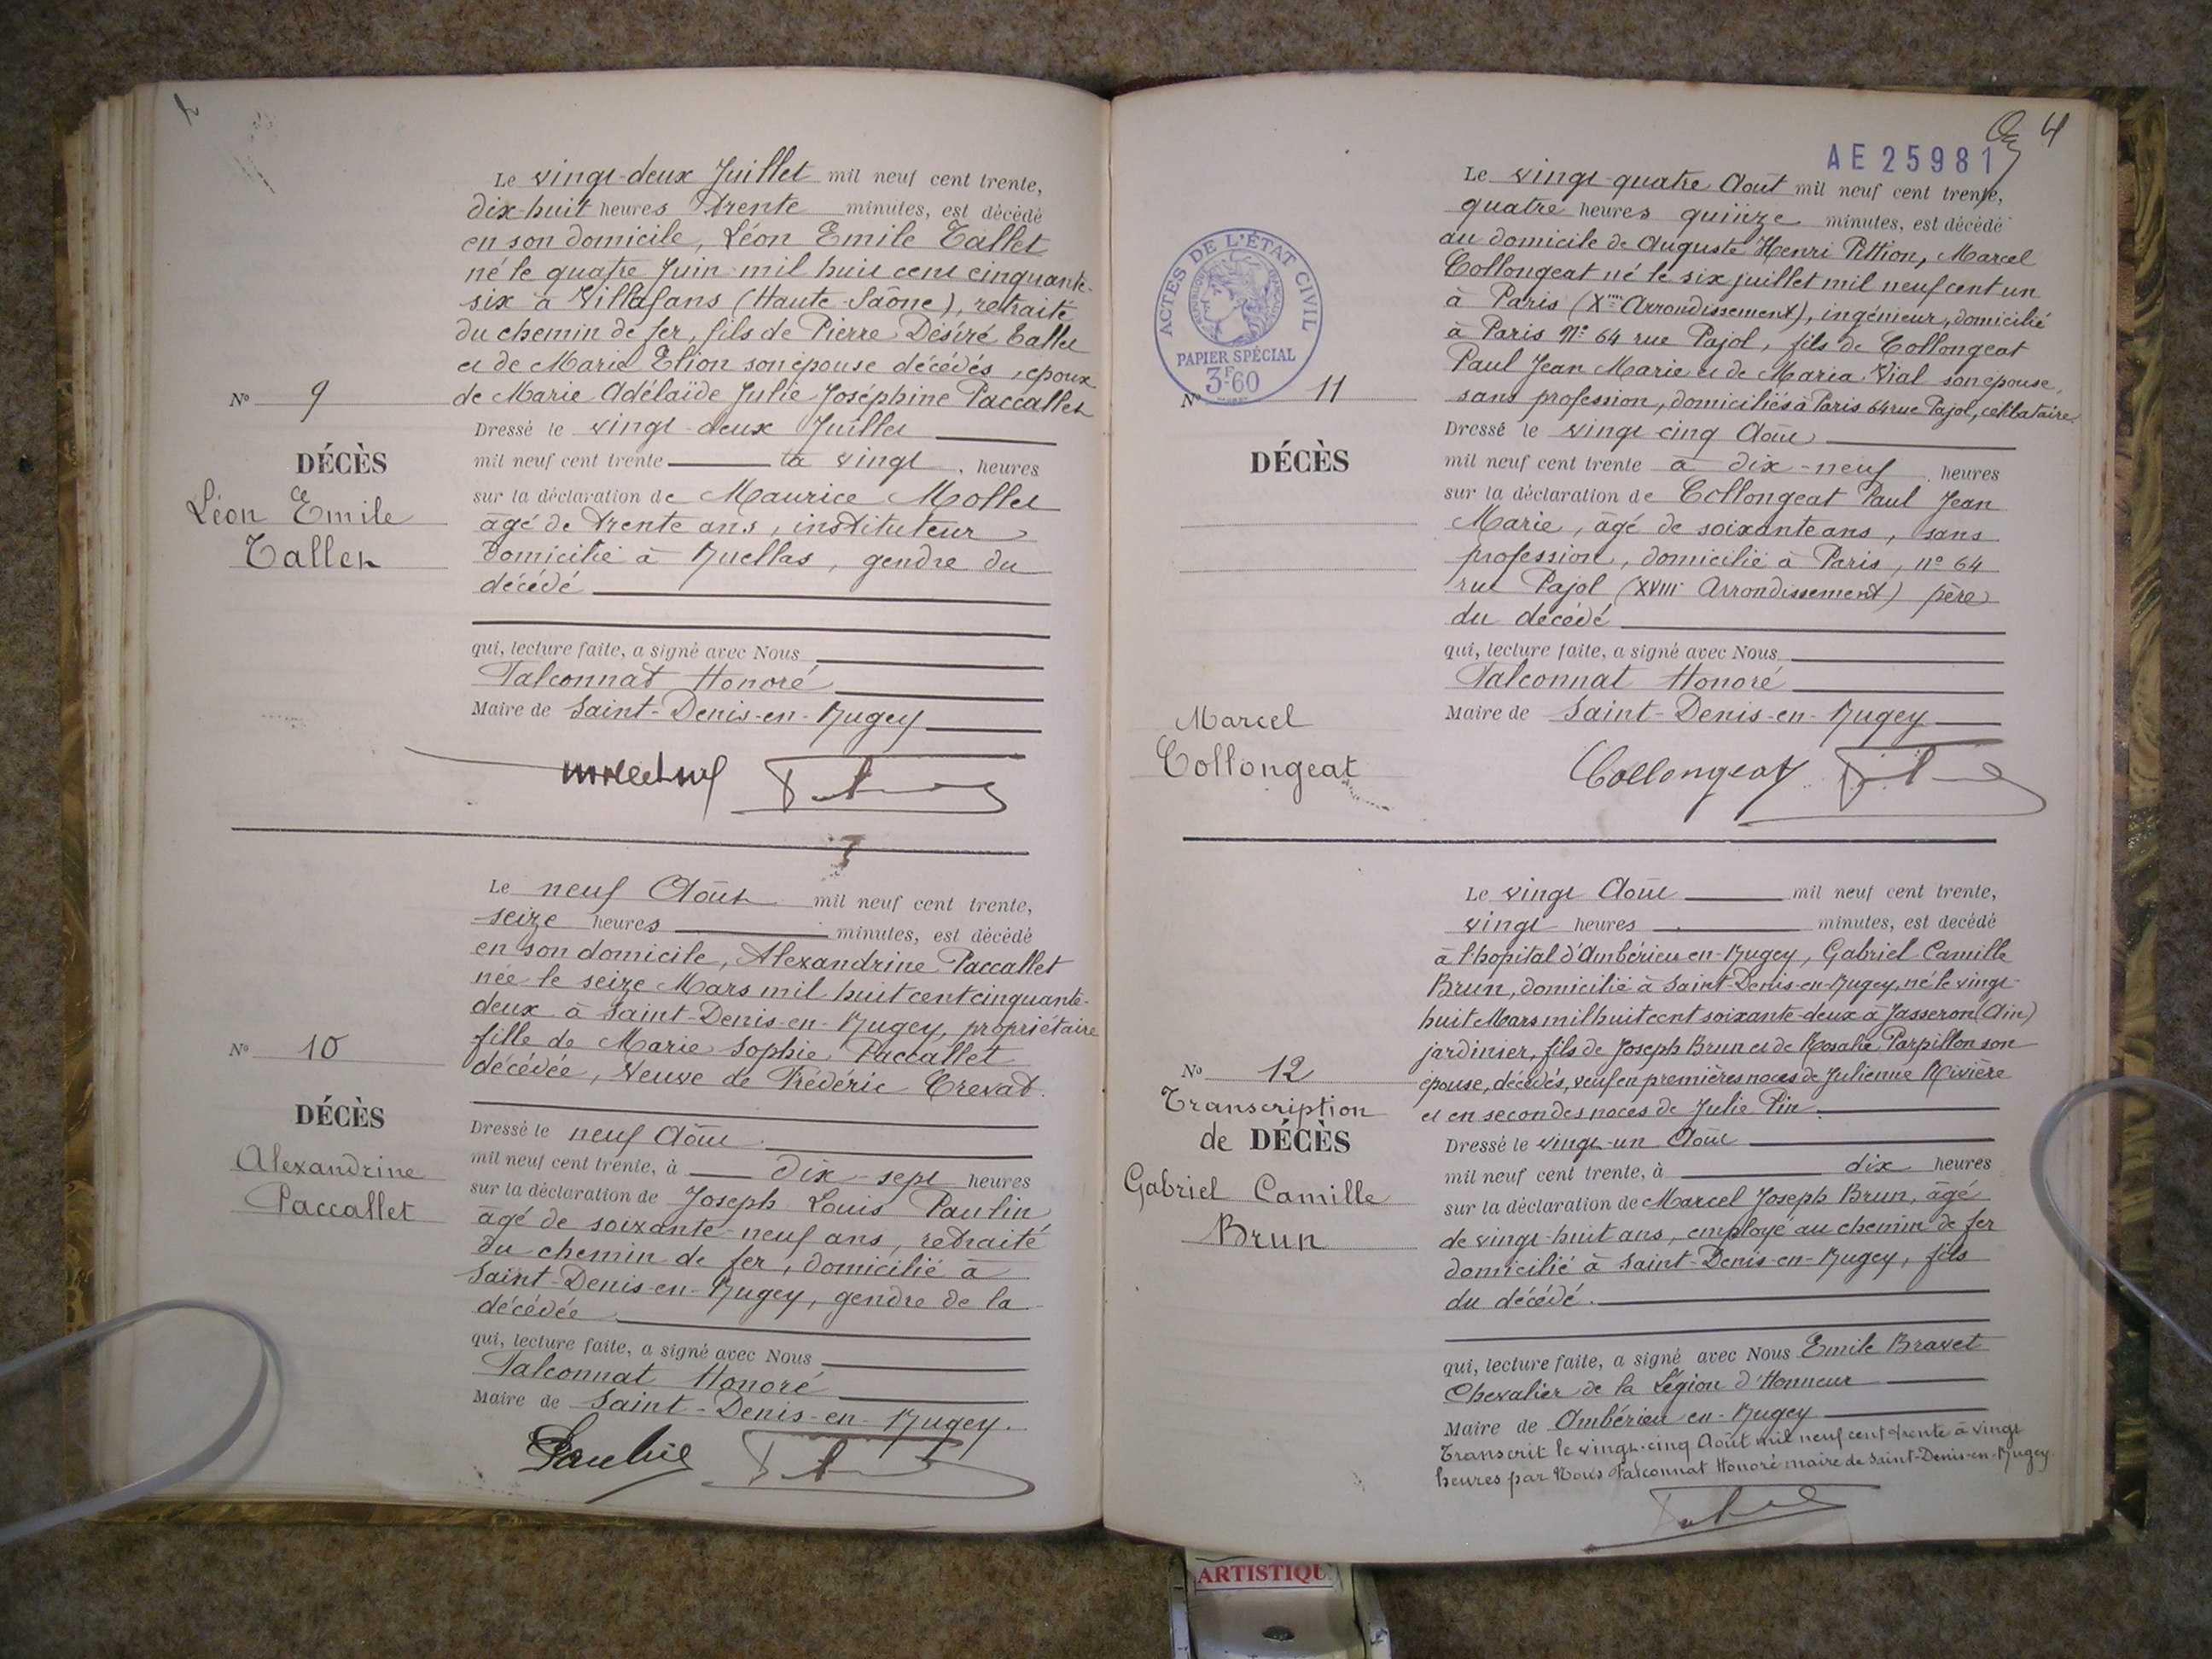 Le vingt-deux Juillet mil neuf cent trente,
dix-huit heures trente minutes, est décédé
en son domicile, Léon Emile Tallet
né le quatre Juin mil huit cent cinquante-
six à Villafans (Haute-Saône), retraité
du chemin de fer, fils de Pierre Désiré Tallet
et de Marie Etion son épouse décédés, époux
de Marie Adélaïde Julie Joséphine Paccallet
Nº 9
DÉCÈS
Léon Emile
Tallet
Dressé le vingt-deux Juillet
mil neuf cent trente à vingt heures
sur la déclaration de Maurice Mollet
âgé de trente ans, instituteur
domicilié à Buellas, gendre du
décédé
qui, lecture faite, a signé avec Nous
Falconnat Honoré
Maire de Saint-Denis-en-Bugey
Le neuf Août mil neuf cent trente,
seize heures minutes, est décédé
en son domicile, Alexandrine Paccallet
née le seize Mars mil huit cent cinquante-
deux à Saint-Denis-en-Bugey, propriétaire
fille de Marie Sophie Paccallet
décédée, Veuve de Frédéric Crevat.
Nº 10
DÉCÈS
Alexandrine
Paccallet
Dressé le neuf Août
mil neuf cent trente, à dix-sept heures
sur la déclaration de Joseph Louis Paulin
âgé de soixante-neuf ans, retraité
du chemin de fer, domicilié à
Saint-Denis-en-Bugey, gendre de la
décédée
qui, lecture faite, a signé avec Nous
Falconnat Honoré
Maire de Saint-Denis-en-Bugey.
Paulin
4
AE 25981
ACTES DE L'ÉTAT CIVIL
RÉPUBLIQUE FRANÇAISE
PAPIER SPÉCIAL
3F.60
Le vingt-quatre Août mil neuf cent trente,
quatre heures quinze minutes, est décédé
au domicile de Auguste Henri Pittion, Marcel
Collongeat né le six juillet mil neuf cent un
à Paris (Xme Arrondissement), ingénieur, domicilié
à Paris Nº 64 rue Pajol, fils de Collongeat
Paul Jean Marie et de Maria Vial son épouse,
sans profession, domiciliés à Paris 64 rue Pajol, célibataire
Nº 11
DÉCÈS
Marcel
Collongeat
Dressé le vingt cinq Août
mil neuf cent trente à dix-neuf heures
sur la déclaration de Collongeat Paul Jean
Marie, âgé de soixante ans, sans
profession, domicilié à Paris, nº 64
rue Pajol (XVIII Arrondissement) père
du décédé
qui, lecture faite, a signé avec Nous
Falconnat Honoré
Maire de Saint-Denis-en-Bugey
Collongeat
Le vingt Août mil neuf cent trente,
vingt heures minutes, est decédé
à l'hopital d'Ambérieu-en-Bugey, Gabriel Camille
Brun, domicilié à Saint-Denis-en-Bugey, né le vingt-
huit Mars mil huit cent soixante-deux à Jasseron (Ain)
jardinier, fils de Joseph Brun et de Rosalie Parpillon son
épouse, décédés, veuf en premières noces de Julienne Rivière
et en secondes noces de Julie Pin.
Nº 12
Transcription
de DÉCÈS
Gabriel Camille
Brun
Dressé le vingt-un Août
mil neuf cent trente, à dix heures
sur la déclaration de Marcel Joseph Brun, âgé
de vingt-huit ans, employé au chemin de fer
domicilié à Saint-Denis-en-Bugey, fils
du décédé.
qui, lecture faite, a signé avec Nous Emile Bravet
Chevalier de la Légion d'Honneur
Maire de Ambérieu-en-Bugey
Transcrit le vingt-cinq Août mil neuf cent trente à vingt
heures par Nous Falconnat Honoré maire de Saint-Denis-en-Bugey.
ARTISTIQU